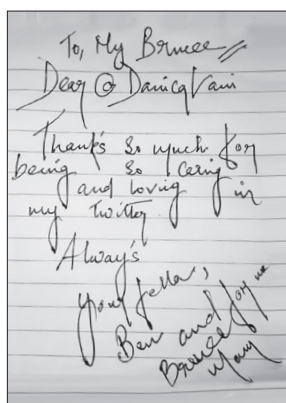 To, My Brucee
Dear @ DanicaVain
Thank's so much for
being so caring
and loving in
my twitty
Alway's
your fella,
Ben and for me
Brucee
Many